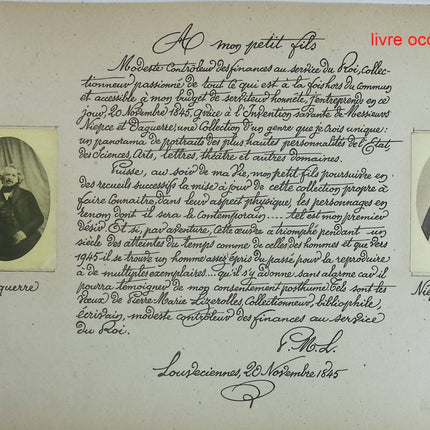 livre occ
A mon petit fils
Modeste Contrôleur des finances au service du Roi, collec-
tionneur passionné de tout ce qui est à la fois hors du commun
et accessible à mon budget de serviteur honnête, j'entreprends en ce
jour, 20 Novembre 1845, Grâce à l'Invention savante de Messieurs
Niepce et Daguerre, une Collection d'un genre que je crois unique:
un panorama de portraits des plus hautes personnalités de l'Etat
des Sciences, Arts, lettres, théâtre et autres domaines.
Puisse, au soir de ma Vie, mon petit fils poursuivre en
des recueils successifs la mise à jour de cette collection propre à
faire connaître, dans leur aspect physique, les personnages en
renom dont il sera le Contemporain.... tel est mon premier
désir. Et si, par aventure, Cette œuvre a triomphé pendant un
siècle des atteintes du temps comme de celle des hommes et que vers
1945 il se trouve un homme assez épris du passé pour la reproduire
à de multiples exemplaires... qu'il s'y adonne sans alarme car il
pourra témoigner de mon consentement posthume. Tels sont les
Vœux de Pierre Marie Lizerolles, Collectionneur, bibliophile,
écrivain, modeste contrôleur des finances au service
du Roi.
P. M. L.
Louveciennes, 20 Novembre 1845
guerre
Nie